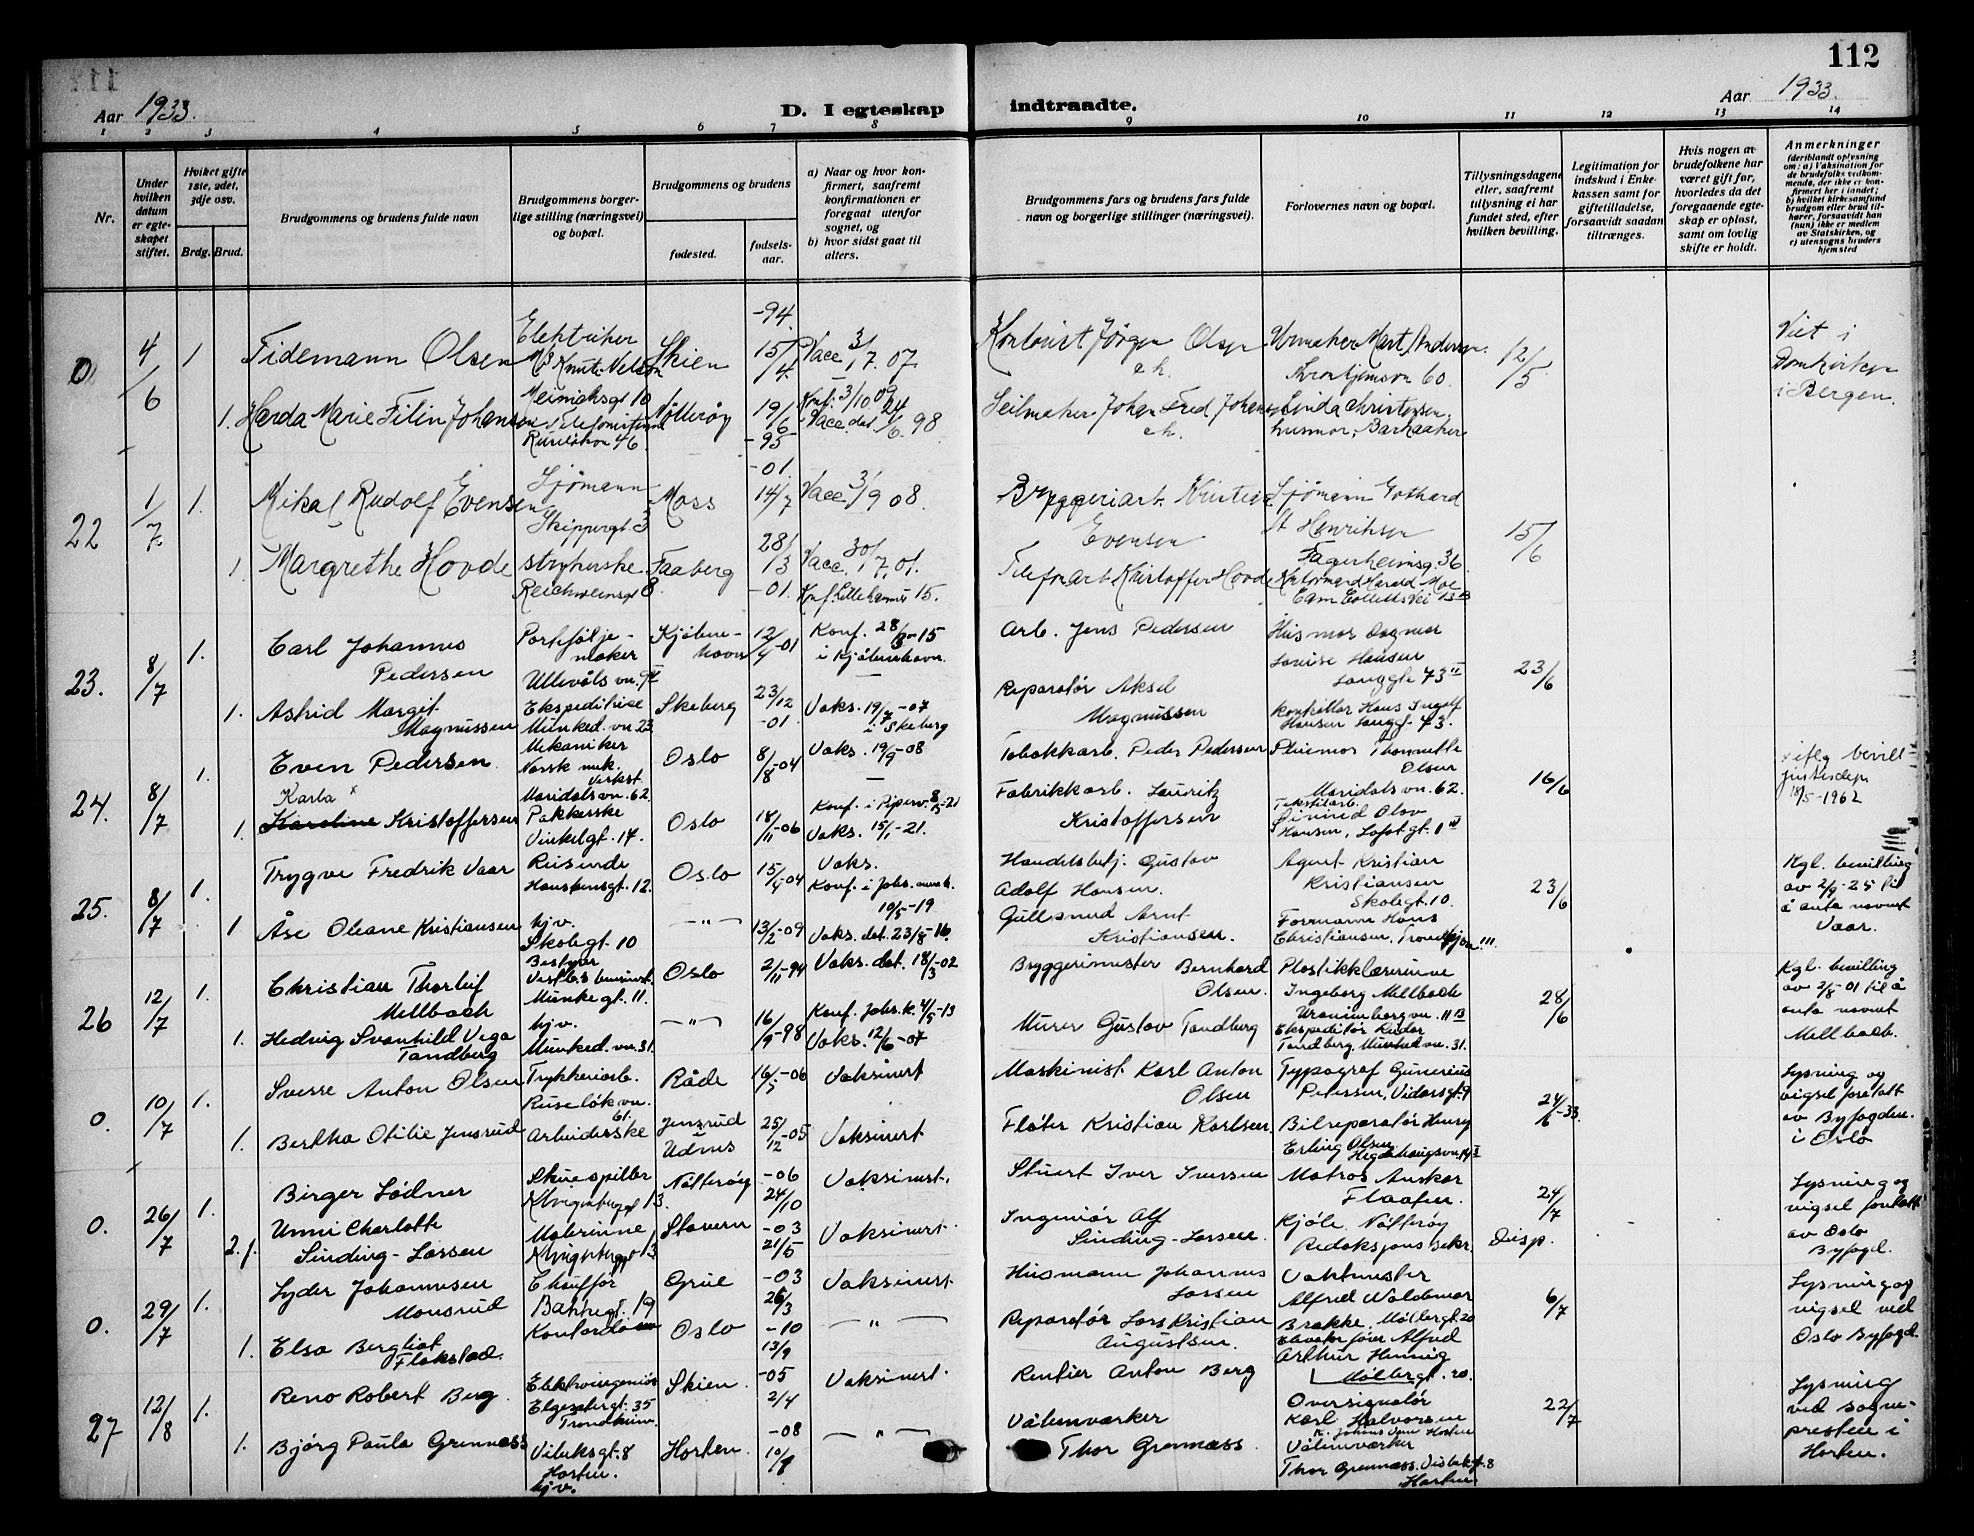 112
Aar 1933.
D. I egteskap
indtraadte.
Aar 1933.
1 2 3 4 5 6 7 8 9 10 11 12 13 14
Nr.
Under hvilken datum er egteskapet stiftet.
Hvilket gifte 1ste, 2det, 3dje osv.
Brdg. Brud.
Brudgommens og brudens fulde navn
Brudgommens borgerlige stilling (næringsvei) og bopæl.
Brudgommens og brudens
fødested.
fødselsaar.
a) Naar og hvor konfirmert, saafremt konfirmationen er foregaat utenfor sognet, og
b) hvor sidst gaat til alters.
Brudgommens fars og brudens fars fulde navn og borgerlige stillinger (næringsvei).
Forlovernes navn og bopæl.
Tillysningsdagene eller, saafremt tillysning ei har fundet sted, efter hvilken bevilling.
Legitimation for indskud i Enkekassen samt for giftetilladelse, forsaavidt saadan tiltrænges.
Hvis nogen av brudefolkene har været gift før, hvorledes da det foregaaende egteskap er opløst, samt om lovlig skifte er holdt.
Anmerkninger
(deriblandt oplysning om: a) Vaksination for de brudefolks vedkommende, der ikke er konfirmert her i landet; b) hvilket kirkesamfund brudgom eller brud tilhører, forsaavidt han (hun) ikke er medlem av Statskirken, og c) utensogns bruders hjemsted
0 4/6 1 Tidemann Olsen
Elektriker
Skien
-94. 15/4.
Vacc 3/7. 07.
Kontorist Jørgen Olsen
e.k.
Urmaker Mart. Andersen.
60.
12/5
Viet i
Domkirken
i Bergen.
1. Herda Marie Elin Johansen
Telefonistinne
46.
Nøtterøy
19/6 -95
Konf. 3/10 09
Vacc. 98
Seilmaker Johan Fred Johansen
e.k.
Linda Christensen,
husmor, Barkaaker
22 1/7 1. Mikal Rudolf Evensen
Sjømann
Skippergt. 3
Moss
-01. 14/7
Vacc. 3/9 08.
Bryggeriarb. Kristian
Evensen
Sjømann Gothard
St. Henriksen
Fagerheimsg. 36
15/6
1. Margrethe Hovde
strykerske
Reichweinsgt 8.
Faaberg
28/3 -01.
Vacc. 30/7. 01.
Konf. Lillehammer 15.
Telefonarb. Kristoffer Hovde
Harald Moe
Cam. Colletts vei 13 B
23. 8/7 1. Carl Johannes
Pedersen
Portefølje-
maker
Ullevåls vn. 9
Kjøben-
havn
12/4 -01
Konf. 28/3-15
i Kjøbenhavn.
Arb. Jens Pedersen
Husmor Dagmar
Louise Hansen
Langgt. 43 II
23/6
1. Astrid Margit
Magnussen
Ekspeditrise
Munked. vn 23
Skeberg
23/12 -01
Vaks. 19/7-07
i Skeberg
Reparatør Aksel
Magnussen
Kontrollør Hans Ingolf
Hansen Langgt. 43.
24. 8/7 1. Even Pedersen
Mekaniker
Norsk mek.
Verkst.
Maridals vn. 62.
Oslo
8/8-04
Vaks. 19/9-08
Tobakkarb. Peder Pedersen
Thomette
Olsen
Maridals vn. 62.
16/6
x iflg. bevilt.
justisdep.
18/5-1962
Karla x
1. Karoline Kristoffersen
Pakkerske
Vinkelgt. 14.
Oslo
18/11-06
Konf. i Piperv. 8/5-21
Vaks. 15/1-21.
Fabrikkarb. Lauritz
Kristoffersen
Tekstilarb.
Olav
Hansen, Lofotgt. 1
25. 8/7 1. Trygve Fredrik Vaar
Reisende
Hausmannsgt. 12.
Oslo
15/4-04
Vaks.
Konf. i Johs. menh.
10/5-19
Handelsbetj. Gustav
Adolf Hansen.
Agent Kristian
Kristiansen
Skolegt. 10.
23/6
Kgl. bevilling
av 2/9-25 til
å anta navnet
Vaar.
1 Åse Oleane Kristiansen
hjv.
Skolegt. 10
-"-
13/2-09
Vaks. dat. 23/8-16.
Gullsmed Arnt
Kristiansen.
Formann Hans
Christiansen, Trondhjvn. 111.
26 12/7 1. Christian Thorleif
Mellbach
Bestyrer
Munkegt. 11.
Oslo
2/11-94
Vaks. dat. 18/3-02
Bryggerimester Bernhard
Olsen.
Plastikklærerinne
Ingeborg Mellbach
Uranienborgvn. 11 B
28/6
Kgl. bevilling
av 2/8-01 til å
anta navnet
Mellbach.
1. Hedvig Svanhild Vega
Tandberg
hjv.
Munked. vn. 31.
-"-
16/9-98
Konf. Johs. k. 4/5-13
Vaks. 12/6-07
Murer Gustav Tandberg
Ekspeditør Reidar
Tandberg, Munked vn. 31.
0. 10/7 1. Sverre Anton Olsen
Trykkeriarb.
Ruseløkvn.
61.
Råde
16/5-06
Vaksinert
Maskinist Karl Anton
Olsen
Typograf Gunerius
Petersen, Vidarsgt. 9
24/6-33.
Lysning og
vigsel foretatt
av Byfogden.
i Oslo
1. Bertha Otilie Jensrud
Arbeiderske
Jensrud
Udnes
25/12-05
Vaksinert
Fløter Kristian Karlsen.
Bilreparatør Henry
Erling Olsen
0. 26/7 1. Birger Lødner
Skuespiller
Klingenberggt 13.
Nøtterøy
-06 24/10
Vaksinert.
Stuert Iver Iversen
Matros Anskar
Flaaten.
Kjøle, Nøtterøy
24/7
Lysning og
vigsel foretatt
av Oslo
Byfogd.
2. f. Unni Charlotte
Sinding-Larsen
Malerinne
Klingenberggt 13
Stavern
-03 21/5
Vaksinert.
Ingeniør Alf
Sinding-Larsen.
Redaksjons sekr.
Disp.
0. 29/7 1. Lyder Johannesen
Monsrud
Chauffør
Bakkegt. 19
Grue
-03 26/3
Vaksinert.
Husmann Johannes
Larsen
Vaktmester
Alfred Waldemar
Brække, Møllergt. 20
6/7
Lysning og
vigsel ved
Oslo Byfogd.
1. Elsa Bergliot
Flakstad.
Kontordame
Oslo
-10 13/9
-"-
Reparatør Lars Kristian
Augustsen.
Elevator fører Alfred
Arthur Henning
Møllergt. 20.
27 12/8 1. Reno Robert Berg
Elektroingeniør
Elgesetergt. 35
Trondheim.
Skien.
-05 2/4
Vaksinert.
Rentier Anton Berg
Oversignatør
Karl Halvorsen
Horten
22/7
Lysning
ved sogne-
presten i
Horten.
1. Bjørg Paula Grennæss
Vibekesgt. 8
Horten.
hjv.
Horten.
-08 10/8
-"-
Våbenværker
Thor Grennæss.
Våbenværker
Thor Grennæss. Vibekesgt. 8
Horten.